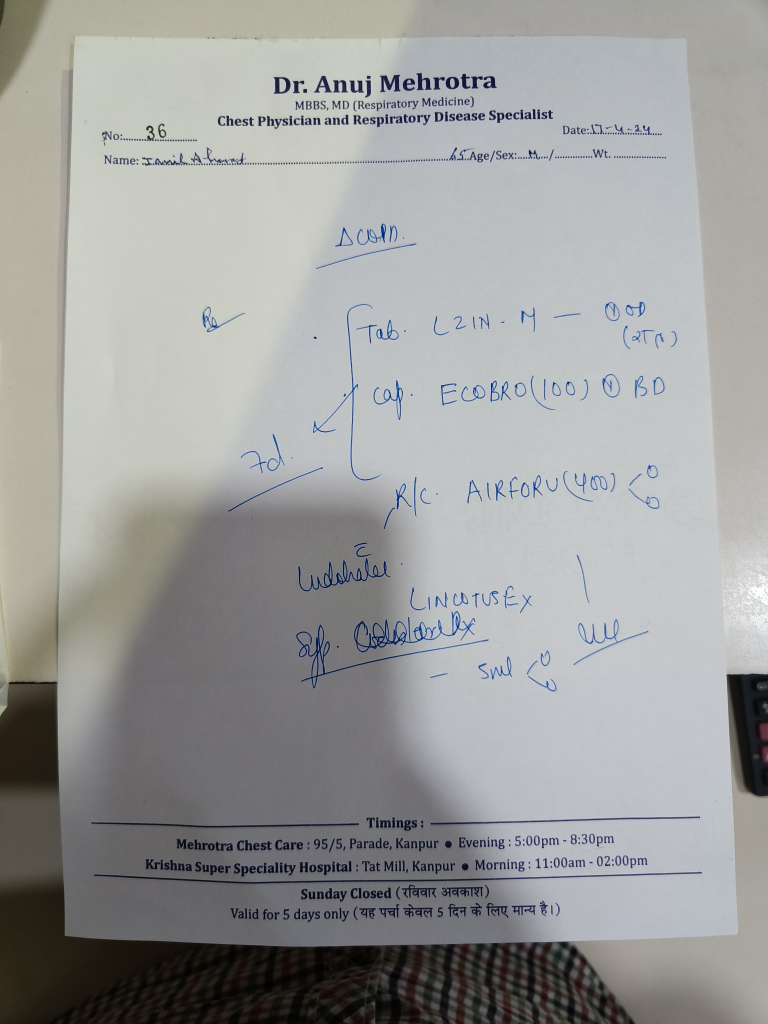 Dr. Anuj Mehrotra
MBBS, MD (Respiratory Medicine)
Chest Physician and Respiratory Disease Specialist
No:......36...... Date:.17-4-24....
Name: Jamil Ahmad 65 Age/Sex:....M.../............Wt. ................
Δ COPD.
Rx
Tab. LZIN-M — ① OD
cap. ECOBRO(100) ① BD
7d.
R/c. AIRFORU(400)
LINCOTUS Ex
Syp.
— 5ml
Timings :
Mehrotra Chest Care : 95/5, Parade, Kanpur ● Evening : 5:00pm - 8:30pm
Krishna Super Speciality Hospital : Tat Mill, Kanpur ● Morning : 11:00am - 02:00pm
Sunday Closed (रविवार अवकाश)
Valid for 5 days only (यह पर्चा केवल 5 दिन के लिए मान्य है।)